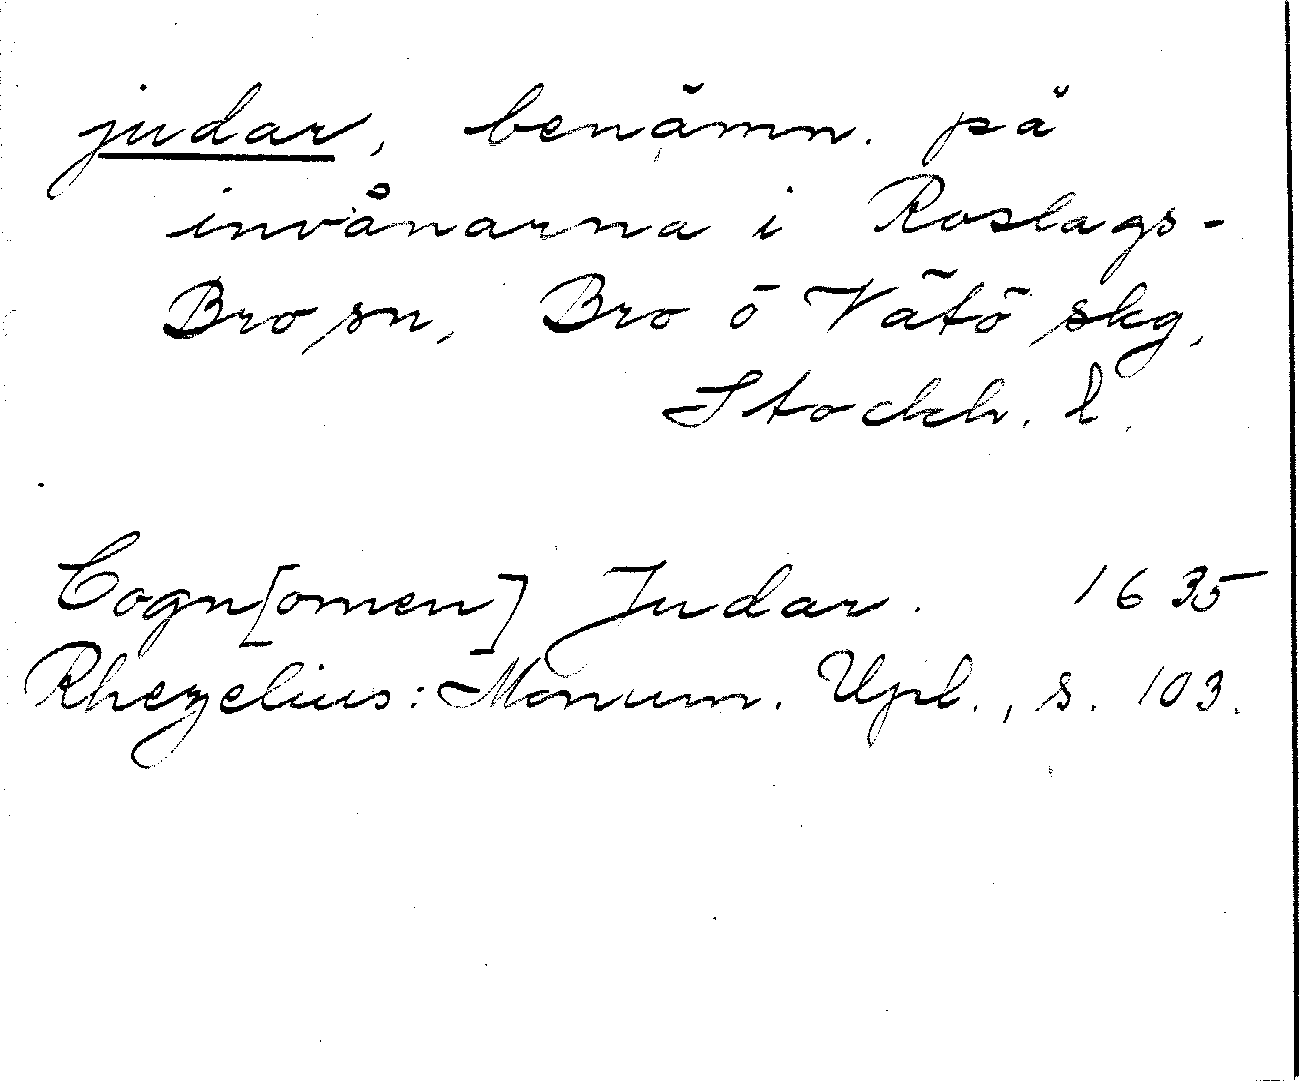 judar, benämn. på
invånarna i Roslags-
Bro sn, Bro ō Vätö skg,
Stockh. l.
Cogn[omen] Judar. 1635
Rhezelius: Monum. Upl., s. 103.